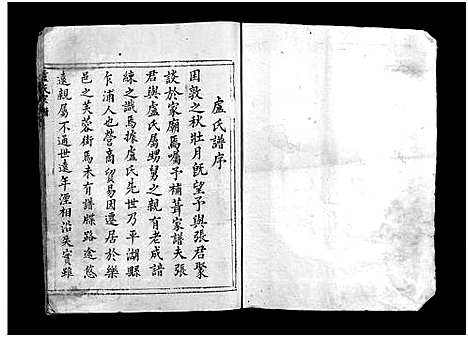 盧氏譜序
困敦之秋壯月旣望予與張君聚
談於家廟焉囑予補葺家譜夫張
君與盧氏屬甥舅之親有老成諳
練之識焉據盧氏先世乃平湖縣
乍浦人也營商貿易因遷居於樂
邑之芙蓉街焉未有譜牒路途悠
遠親屬不通世遠年湮相沿失實雖